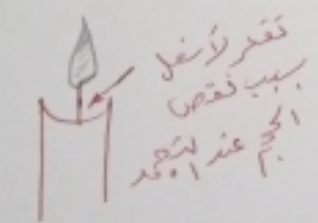 تقعر لأسفل
بسبب نقص
الحجم عند التجمد